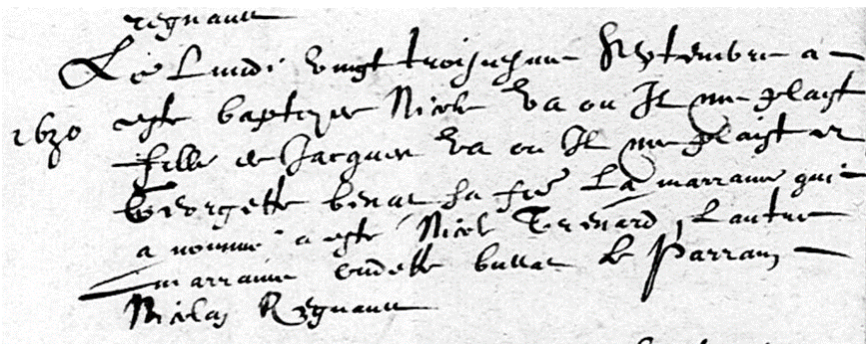 regnault
Le Lundi vingt troisiesme Septembre a
1630 este baptizee Nicole Va ou Il me plaist
fille de Jacques Va ou Il me plaist et
Georgette benat sa fe La marraine qui
a nomme a este Nicole Lautre
marraine Oudette le Parrain
Nicolas Regnault